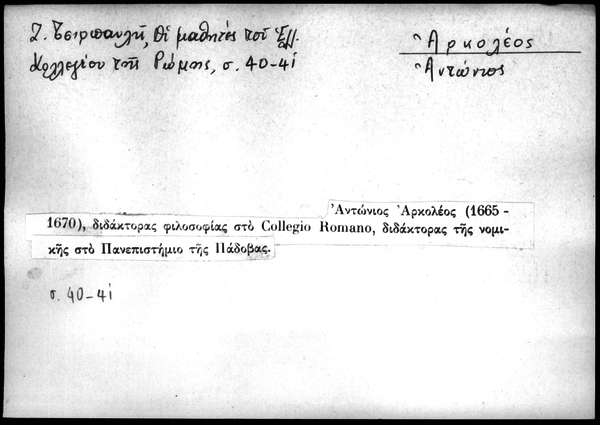 Ζ. Τσιρπανλῆ, Οἱ μαθητές τοῦ Ἑλλ.
Κολλεγίου τῆς Ρώμης, σ. 40-41
Ἀρκολέος
Ἀντώνιος
Ἀντώνιος Ἀρκολέος (1665-
1670), διδάκτορας φιλοσοφίας στὸ Collegio Romano, διδάκτορας τῆς νομι-
κῆς στὸ Πανεπιστήμιο τῆς Πάδοβας.
σ. 40-41